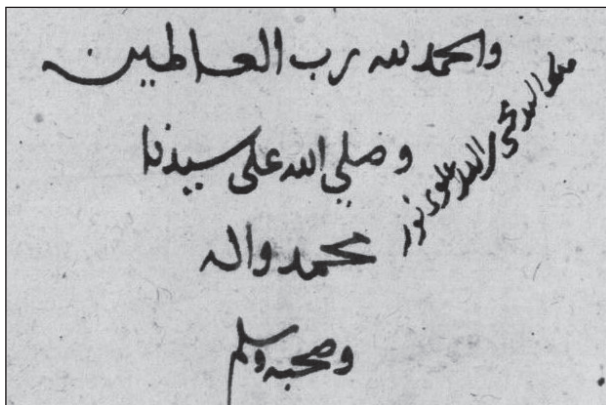 والحمد لله رب العالمين
وصلي الله على سيدنا
محمد واله
وصحبه وسلم
علوي نور